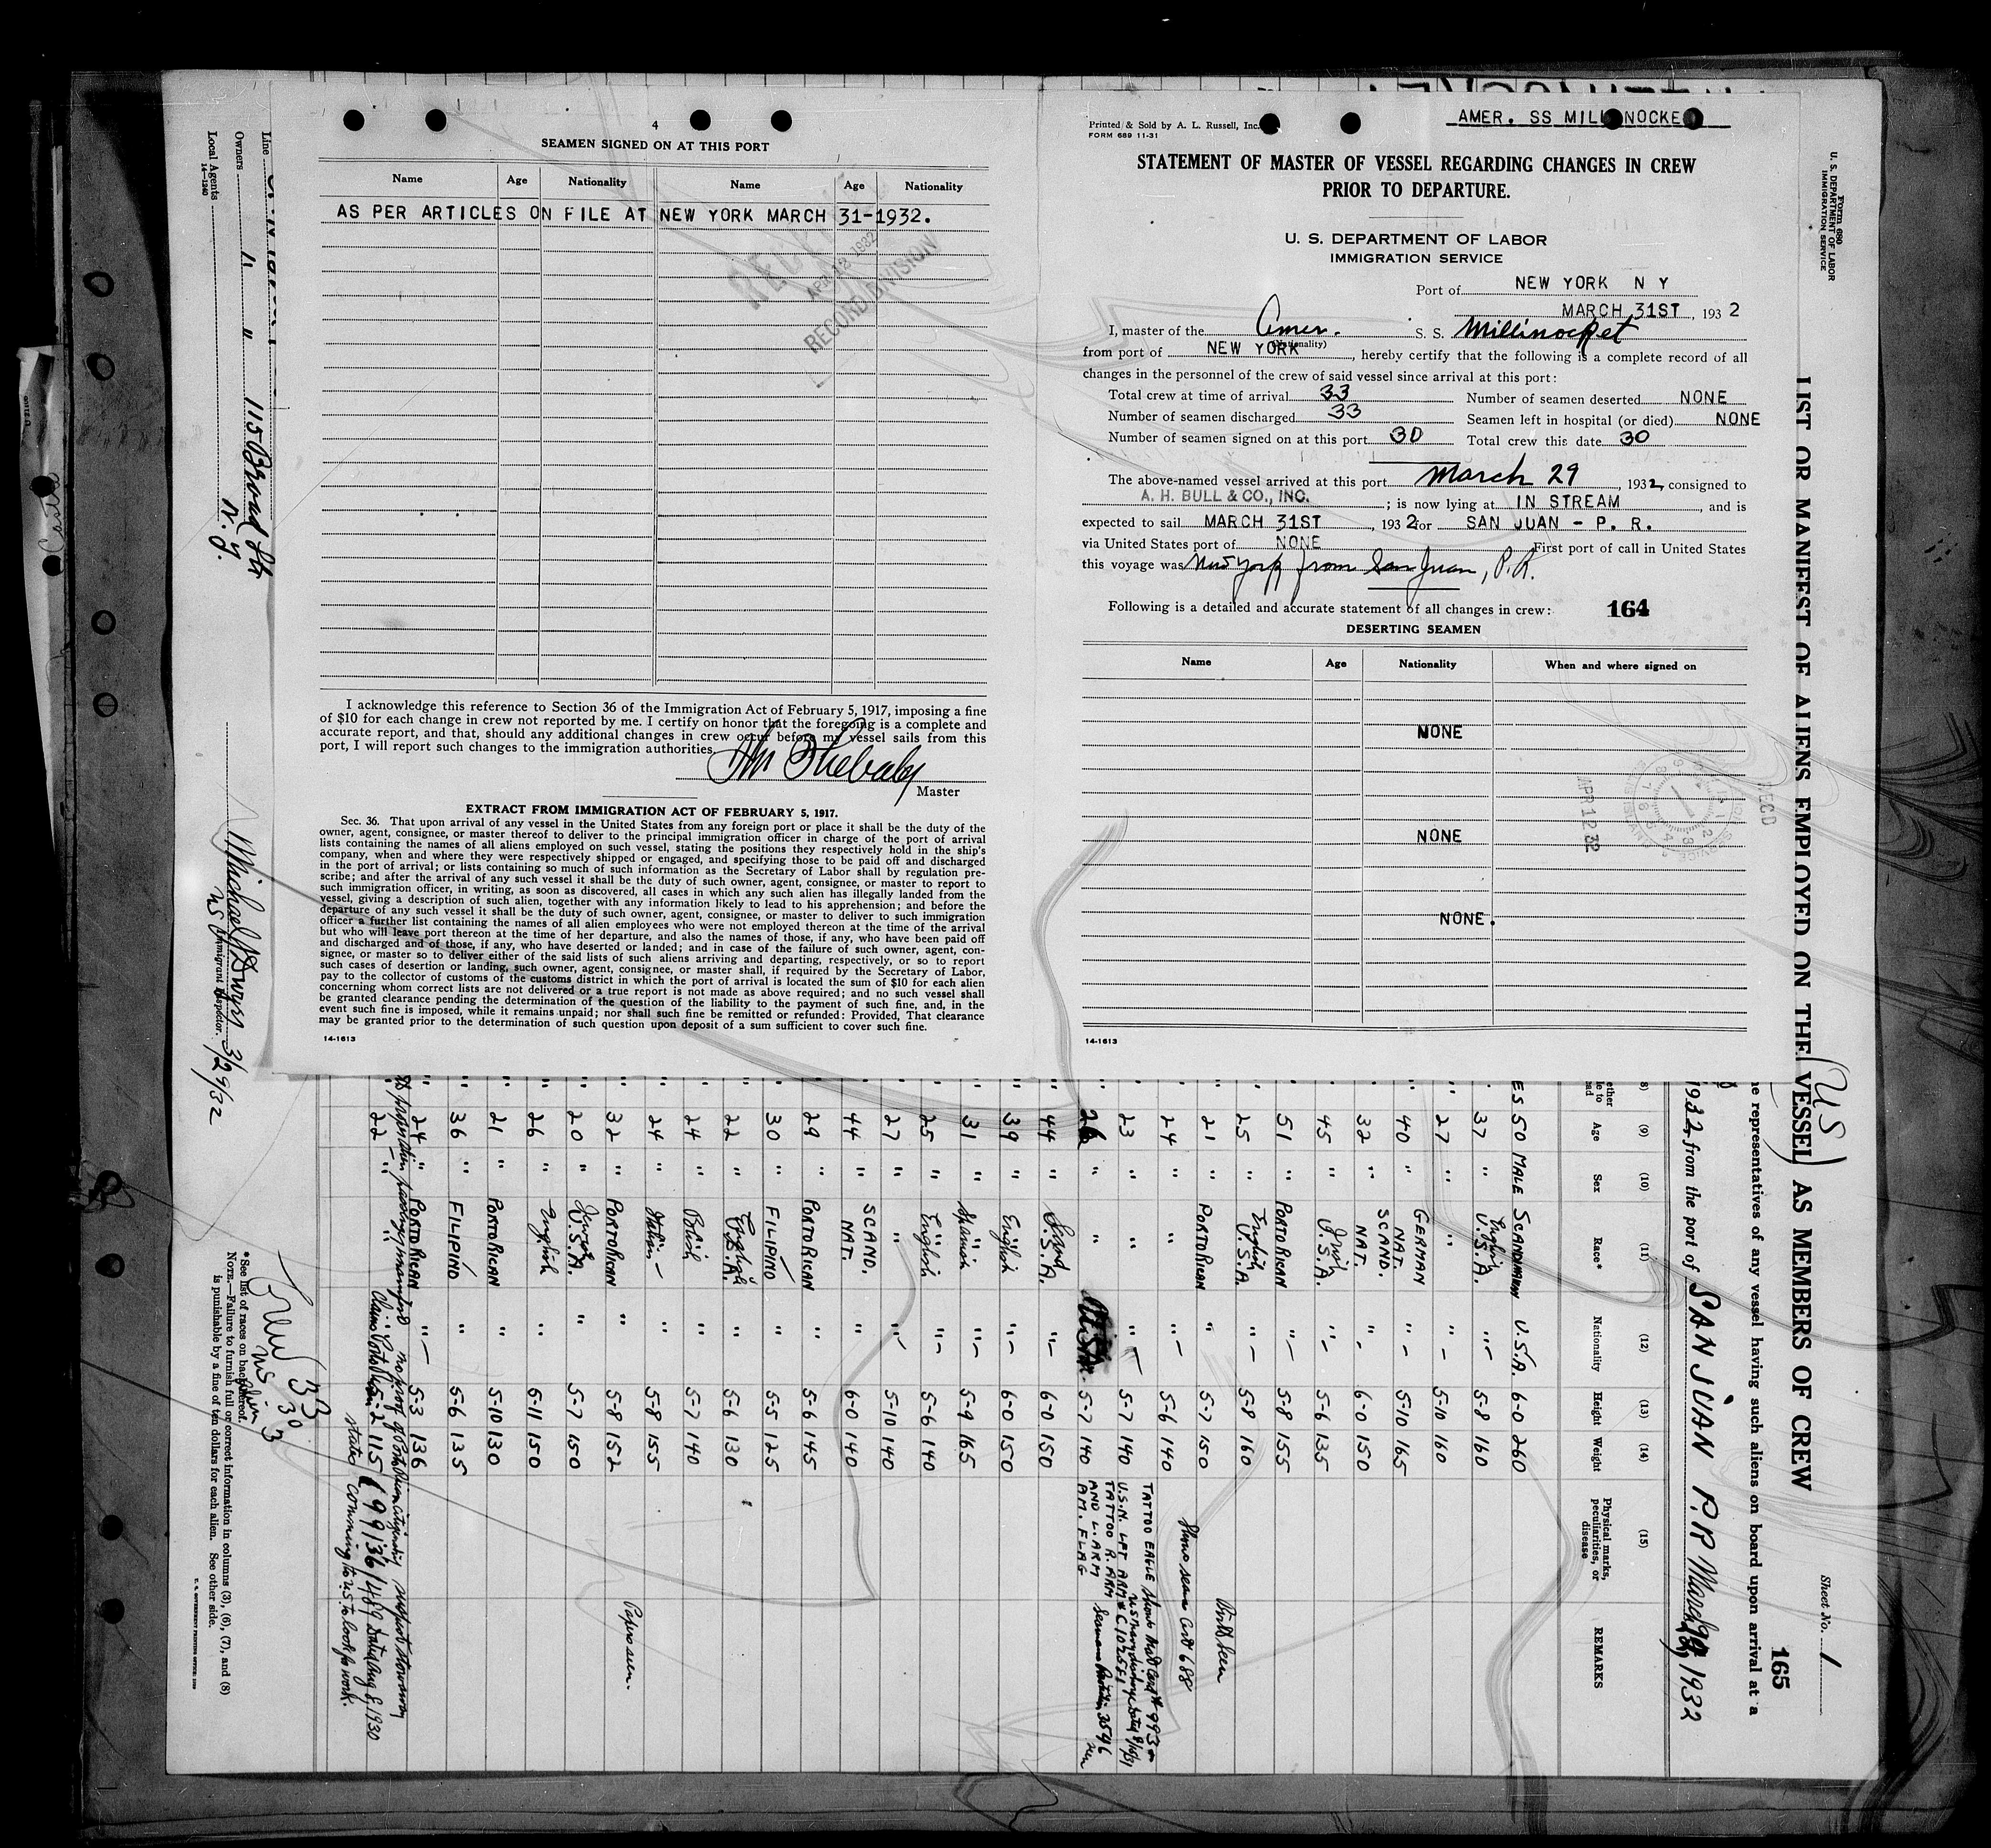 4
SEAMEN SIGNED ON AT THIS PORT
Name Age Nationality Name Age Nationality
AS PER ARTICLES ON FILE AT NEW YORK MARCH 31-1932.
APR 13 1932
RECORD DIVISION
I acknowledge this reference to Section 36 of the Immigration Act of February 5, 1917, imposing a fine
of $10 for each change in crew not reported by me. I certify on honor that the foregoing is a complete and
accurate report, and that, should any additional changes in crew occur before my vessel sails from this
port, I will report such changes to the immigration authorities.
Master
EXTRACT FROM IMMIGRATION ACT OF FEBRUARY 5, 1917.
Sec. 36. That upon arrival of any vessel in the United States from any foreign port or place it shall be the duty of the
owner, agent, consignee, or master thereof to deliver to the principal immigration officer in charge of the port of arrival
lists containing the names of all aliens employed on such vessel, stating the positions they respectively hold in the ship's
company, when and where they were respectively shipped or engaged, and specifying those to be paid off and discharged
in the port of arrival; or lists containing so much of such information as the Secretary of Labor shall by regulation pre-
scribe; and after the arrival of any such vessel it shall be the duty of such owner, agent, consignee, or master to report to
such immigration officer, in writing, as soon as discovered, all cases in which any such alien has illegally landed from the
vessel, giving a description of such alien, together with any information likely to lead to his apprehension; and before the
departure of any such vessel it shall be the duty of such owner, agent, consignee, or master to deliver to such immigration
officer a further list containing the names of all alien employees who were not employed thereon at the time of the arrival
but who will leave port thereon at the time of her departure, and also the names of those, if any, who have been paid off
and discharged and of those, if any, who have deserted or landed; and in case of the failure of such owner, agent, con-
signee, or master so to deliver either of the said lists of such aliens arriving and departing, respectively, or so to report
such cases of desertion or landing, such owner, agent, consignee, or master shall, if required by the Secretary of Labor,
pay to the collector of customs of the customs district in which the port of arrival is located the sum of $10 for each alien
concerning whom correct lists are not delivered or a true report is not made as above required; and no such vessel shall
be granted clearance pending the determination of the question of the liability to the payment of such fine, and, in the
event such fine is imposed, while it remains unpaid; nor shall such fine be remitted or refunded: Provided, That clearance
may be granted prior to the determination of such question upon deposit of a sum sufficient to cover such fine.
14-1613
Printed & Sold by A. L. Russell, Inc.
FORM 689 11-31
AMER. SS MILLINOCKE
STATEMENT OF MASTER OF VESSEL REGARDING CHANGES IN CREW
PRIOR TO DEPARTURE.
U. S. DEPARTMENT OF LABOR
IMMIGRATION SERVICE
Port of NEW YORK N Y
MARCH 31ST, 1932
I, master of the Amer. S. S. Millinocket
(Nationality)
from port of NEW YORK, hereby certify that the following is a complete record of all
changes in the personnel of the crew of said vessel since arrival at this port:
Total crew at time of arrival 33 Number of seamen deserted NONE
Number of seamen discharged 33 Seamen left in hospital (or died) NONE
Number of seamen signed on at this port 30 Total crew this date 30
The above-named vessel arrived at this port March 29, 1932, consigned to
A. H. BULL & CO., INC.; is now lying at IN STREAM, and is
expected to sail MARCH 31ST, 1932 for SAN JUAN - P. R.
via United States port of NONE First port of call in United States
this voyage was New York from San Juan, P.R.
Following is a detailed and accurate statement of all changes in crew: 164
DESERTING SEAMEN
Name Age Nationality When and where signed on
NONE
NONE
NONE.
RECD
APR 12 32
14-1613
Form 680
U. S. DEPARTMENT OF LABOR
IMMIGRATION SERVICE
LIST OR MANIFEST OF ALIENS EMPLOYED ON THE VESSEL AS MEMBERS OF CREW
(US)
Sheet No. 1
165
he representatives of any vessel having such aliens on board upon arrival at a
1932, from the port of SAN JUAN P.R. March 1932
(9) (10) (11) (12) (13) (14) (15)
Age Sex Race* Nationality Height Weight Physical marks, peculiarities, or disease REMARKS
ES 50 MALE SCANDINAVIAN U.S.A. 6-0 260
37 " English U.S.A. " 5-8 160
27 " " " 5-10 160
40 " GERMAN NAT. " 5-10 165
32 " SCAND. NAT. " 6-0 150
45 " Irish U.S.A. " 5-6 135
51 " PORTORICAN " 5-8 155
25 " English U.S.A. " 5-8 160
21 " PORTORICAN " 5-7 150 Birth seen
24 " " " 5-6 140 Shows seam Card 688
23 " " " 5-7 140 TATTOO EAGLE U.S.N. LFT ARM
26 " " 5-7 140 TATTOO R. ARM AND L. ARM AM. FLAG
44 " Scand U.S.A. " 6-0 150
39 " English " 6-0 150
31 " Spanish " 5-9 165
25 " English " 5-6 140
27 " " " 5-10 140
44 " SCAND. NAT. " 6-0 140
29 " PORTORICAN " 5-6 145
30 " FILIPINO " 5-5 125
22 " English U.S.A. " 5-6 130
24 " Polish " 5-7 140
24 " Italian " 5-8 155
32 " PORTORICAN " 5-8 152 Papers seen.
20 " U.S.A. " 5-7 150
26 " English " 5-11 150
21 " PORTORICAN " 5-10 130
36 " FILIPINO " 5-6 135
24 " PORTORICAN " 5-3 136
22 " " 5-2 115
states comming to U.S. to look for work.
*See list of races on back hereof.
NOTE.—Failure to furnish full or correct information in columns (3), (6), (7), and (8)
is punishable by a fine of ten dollars for each alien. See other side.
Crew 33
US 30
Alien 3
Line
Owners " "
Local Agents 115 Broad Str
N.Y.
14-1240
Immigrant Inspector. 3/29/32